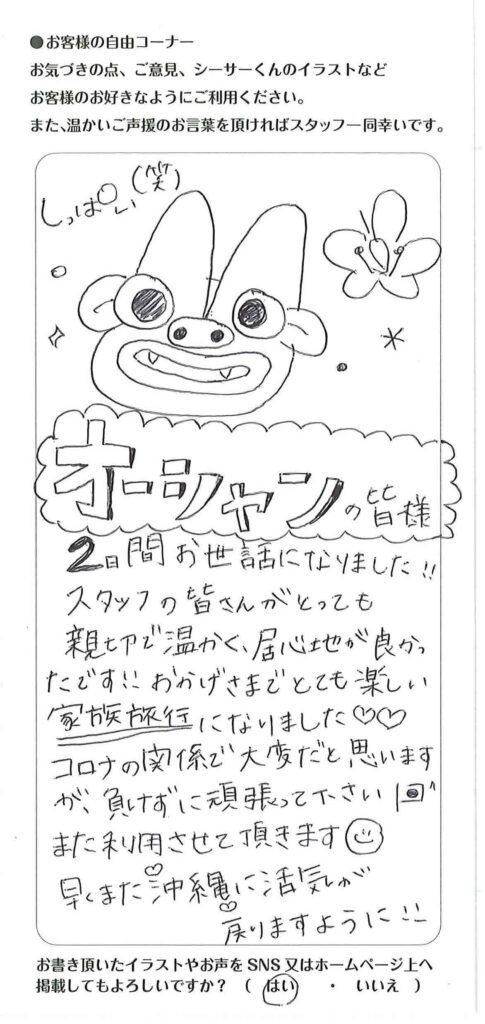 ●お客様の自由コーナー
お気づきの点、ご意見、シーサーくんのイラストなど
お客様のお好きなようにご利用ください。
また、温かいご声援のお言葉を頂ければスタッフ一同幸いです。
しっぱい(笑)
オーシャンの皆様
2日間お世話になりました!!
スタッフの皆さんがとっても
親切で温かく、居心地が良かっ
たです!! おかげさまでとても楽しい
家族旅行になりました♡♡
コロナの関係で大変だと思います
が、負けずに頑張って下さい
また利用させて頂きます☺
早くまた沖縄に活気が
戻りますように!!
お書き頂いたイラストやお声をSNS又はホームページ上へ
掲載してもよろしいですか？ （ はい ・ いいえ ）